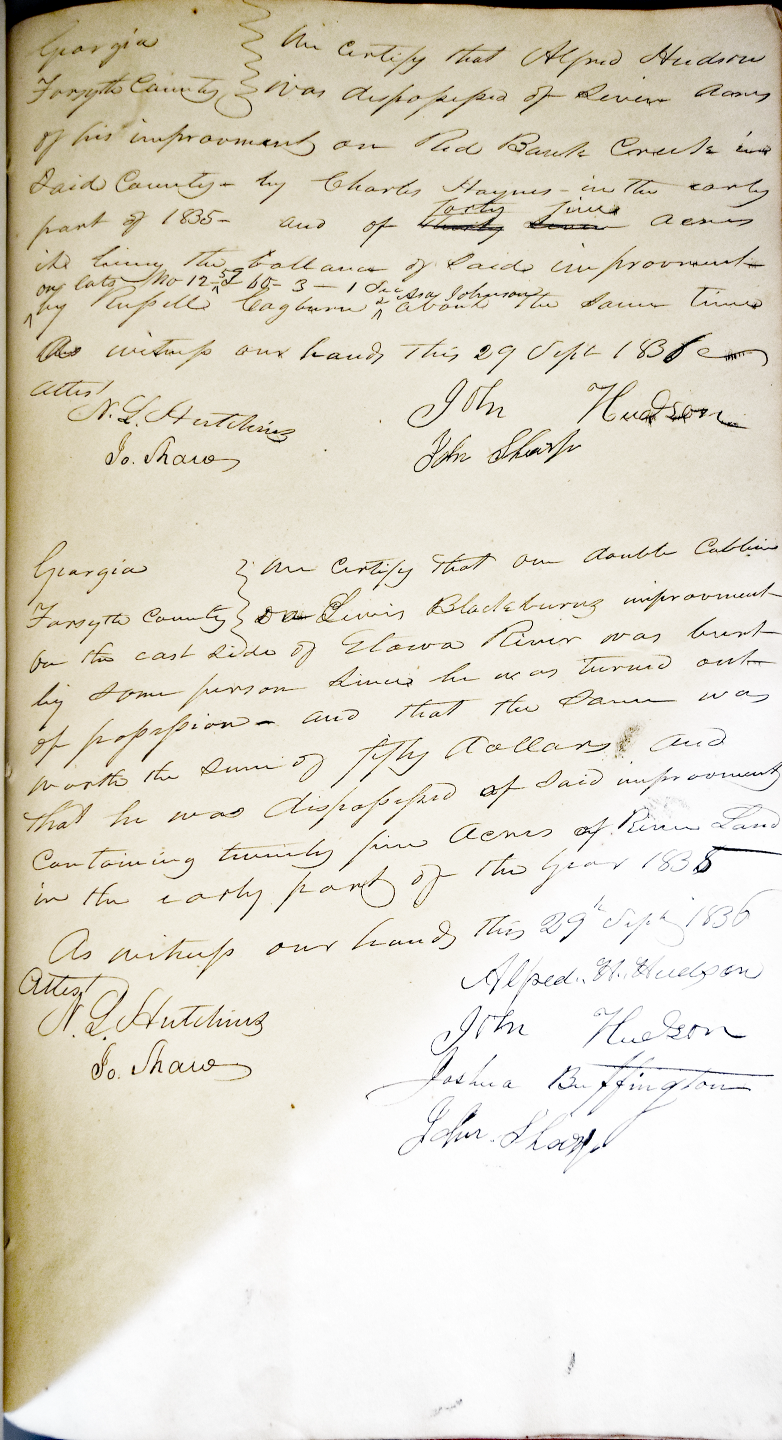 Georgia We certify that Alfred Hudson
Forsyth County was dispossessed of Seven acres
of his improvment on Red Bank Creek in
Said County - by Charles Haynes - in the early
part of 1835 - and of thirty seven forty five acres
it being the ballance of Said improvment
on lots No 12-52 & 65 - 3 - 1 Sec
by Russell Cagburn & Asa Johnson about the Same time
As witness our hands this 29 Sept 1836
Attest
N. L. Hutchins John Hudson
Jo. Shaw John Sharp
Georgia We certify that one double Cabbin
Forsyth County on Lewis Blackburns improvment
on the east side of Etowa River was burt
by Some person Since he was turned out
of possession - and that the Same was
worth the Sum of fifty dollars and
that he was dispossessed of Said improvment
Containing twenty five acres of River Land
in the early part of the year 1835
As witness our hands this 29th Sept 1836
Attest
Alfred. H. Hudson
N. L. Hutchins John Hudson
Jo. Shaw Joshua Buffington
John Sharp